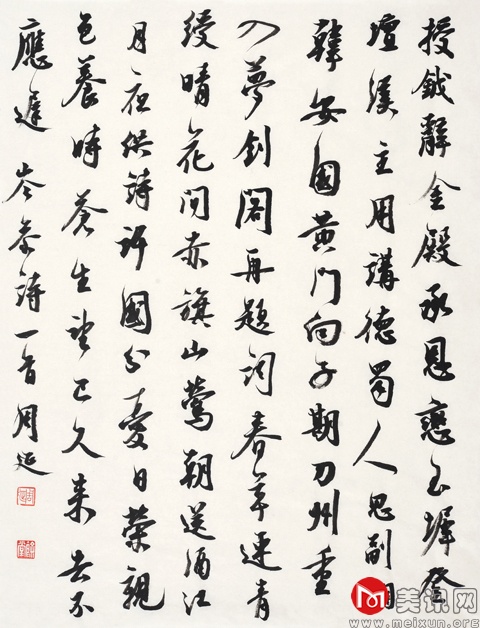 授鉞辭金殿承恩戀玉墀登
壇漢主用講德蜀人思副相
韓安國黃門向子期刀州重
入夢劍閣再題詞春草連青
綬晴花間赤旗山鶯朝送酒江
月夜供詩許國分憂日榮親
色養時蒼生望已久來去不
應遲 岑參詩一首 周延
美讯网
www.meixun.org